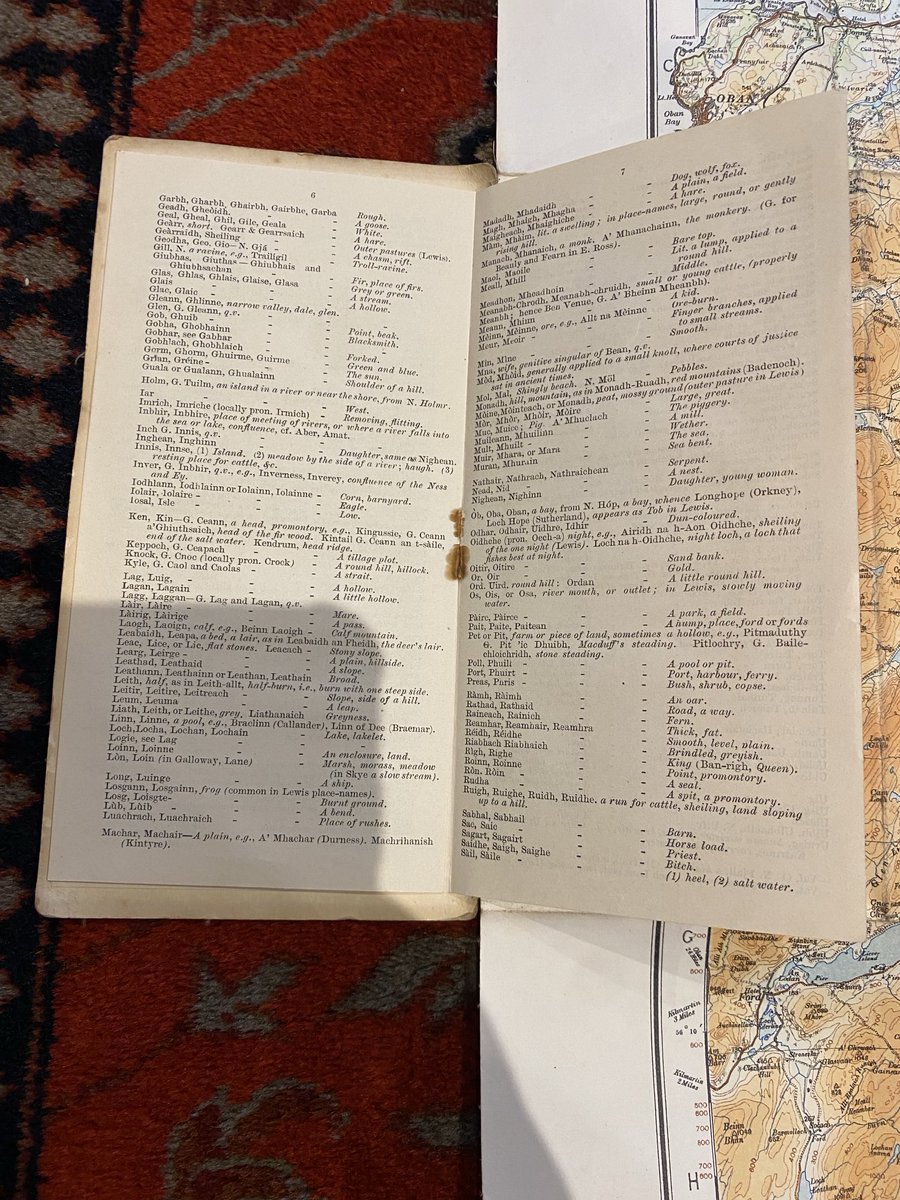 6
Garbh, Gharbh, Ghairbh, Gairbhe, Garba Rough.
Geadh, Gheòidh. - A goose.
Geal, Gheal, Ghil, Gile, Geala White.
Geàrr, short. Gearr & Gearrsaich - A hare.
Geàrraidh, Sheiling - Outer pastures (Lewis).
Geodha, Geo. Gio—N. Gjá - A chasm, rift.
Gill, N. a racine, e.g., Traillgil - Troll-racine.
Giubhas. Giuthas—Ghiubhais and
Ghiubhsachan - Fir, place of firs.
Glas, Ghlas, Ghlais, Glaise, Glasa Grey or green.
Glais - A stream.
Glac, Glaic - A hollow.
Gleann, Ghlinne, narrow valley, dale, glen.
Glen, G. Gleann, q.v.
Gob, Ghuib - Point, beak.
Gobha, Ghobhainn - Blacksmith.
Gobhar, see Gabhar
Gobhlach, Ghobhlaich - Forked.
Gorm, Ghorm, Ghuirme, Guirme - Green and blue.
Grian, Gréine - The sun.
Guala or Gualann, Ghualainn - Shoulder of a hill.
Holm, G. Tuilm, an island in a river or near the shore, from N. Holmr.
Iar - West.
Imrich, Imriche (locally pron. Irmich) - Removing, flitting.
Inbhir, Inbhire, place of meeting of rivers, or where a river falls into
the sea or lake, confluence, cf. Aber, Amat.
Inch G. Innis, q.v.
Inghean, Inghinn - Daughter, same as Nighean.
Innis, Innse, (1) Island. (2) meadow by the side of a river; haugh. (3)
resting place for cattle, &c.
Inver, G. Inbhir, q.v., e.g., Inverness, Inverey, confluence of the Ness
and Ey.
Iodhlann, Iodhlainn or Iolainn, Iolainne - Corn, barnyard.
Iolair, Iolaire - Eagle.
Iosal, Isle - Low.
Ken, Kin—G. Ceann, a head, promontory, e.g., Kingussie, G. Ceann
a'Ghiuthsaich, head of the fir wood. Kintail G. Ceann an t-sàile,
end of the salt water. Kendrum, head ridge.
Keppoch, G. Ceapach - A tillage plot.
Knock, G. Cnoc (locally pron. Crock) - A round hill, hillock.
Kyle, G. Caol and Caolas - A strait.
Lag, Luig, - A hollow.
Lagan, Lagain - A little hollow.
Lagg, Laggan—G. Lag and Lagan, q.v.
Làir, Làire - Mare.
Làirig, Làirige - A pass.
Laogh, Laoigh, calf, e.g., Beinn Laoigh - Calf mountain.
Leabaidh, Leapa, a bed, a lair, as in Leabaidh an Fheidh, the deer's lair.
Leac, Lice, or Lic, flat stones. Leacach - Stony slope.
Learg, Leirge - A plain, hillside.
Leathad, Leathaid - A slope.
Leathann, Leathainn or Leathan, Leathain Broad.
Leith, half, as in Leith-allt, half-burn, i.e., burn with one steep side.
Leitir, Leitire, Leitreach - Slope, side of a hill.
Leum, Leuma - A leap.
Liath, Leith, or Leithe, grey. Liathanaich - Greyness.
Linn, Linne, a pool, e.g., Braclinn (Callander), Linn of Dee (Braemar).
Loch, Locha, Lochan, Lochain - Lake, lakelet.
Logie, see Lag
Loinn, Loinne - An enclosure, land.
Lòn, Loin (in Galloway, Lane) - Marsh, morass, meadow
(in Skye a slow stream).
Long, Luinge - A ship.
Losgann, Losgainn, frog (common in Lewis place-names).
Losg, Loisgte- - Burnt ground.
Lùb, Lùib - A bend.
Luachrach, Luachraich - Place of rushes.
Machar, Machair—A plain, e.g., A' Mhachar (Durness). Machrihanish
(Kintyre).
7
Madadh, Mhadaidh - Dog, wolf, fox.
Magh, Mhaigh, Mhagha - A plain, a field.
Maigheach, Mhaighiche - A hare.
Màm, Mhàim, lit. a swelling; in place-names, large, round, or gently
rising hill.
Manach, Mhanaich, a monk. A' Mhanachainn, the monkery. (G. for
Beauly and Fearn in E. Ross).
Maol, Maoile - Bare top.
Meall, Mhill - Lit. a lump, applied to a
round hill.
Meadhon, Mheadhoin - Middle.
Meanabh-Chrodh, Meanabh-chruidh, small or young cattle, (properly
Meanbh; hence Ben Venue, G. A' Bheinn Mheanbh).
Meann, Mhinn - A kid.
Mèinn, Mèinne, ore, e.g., Allt na Mèinne - Ore-burn.
Meur, Meoir - Finger branches, applied
to small streams.
Mìn, Mìne - Smooth.
Mna, wife, genitive singular of Bean, q.v.
Mòd, Mhòid, generally applied to a small knoll, where courts of justice
sat in ancient times.
Mol, Mal, Shingly beach. N. Möl - Pebbles.
Monadh, hill, mountain, as in Monadh-Ruadh, red mountains (Badenoch).
Mòine, Mòinteach, or Monadh, peat, mossy ground (outer pasture in Lewis)
Mòr, Mhòr, Mhòir, Mòire - Large, great.
Muc, Muice; Pig. A' Mhuclach - The piggery.
Muileann, Mhuilinn - A mill.
Mult, Mhuilt - Wether.
Muir, Mhara, or Mara - The sea.
Muran, Mhurain - Sea bent.
Nathair, Nathrach, Nathraichean - Serpent.
Nead, Nid - A nest.
Nighean, Nighinn - Daughter, young woman.
Òb, Oba, Oban, a bay, from N. Hóp, a bay, whence Longhope (Orkney),
Loch Hope (Sutherland), appears as Tob in Lewis.
Odhar, Odhair, Uidhre, Idhir - Dun-coloured.
Oidhche (pron. Oech-a) night, e.g., Airidh na h-Aon Oidhche, sheiling
of the one night (Lewis). Loch na h-Oidhche, night loch, a loch that
fishes best at night.
Oitir, Oitire - Sand bank.
Or, Oir - Gold.
Ord, Uird, round hill: Ordan - A little round hill.
Os, Ois, or Osa, river mouth, or outlet; in Lewis, slowly moving
water.
Pàirc, Pàirce - A park, a field.
Pait, Paite, Paitean - A hump, place, ford or fords
Pet or Pit, farm or piece of land, sometimes a hollow, e.g., Pitmaduthy
G. Pit 'ic Dhuibh, Macduff's steading. Pitlochry, G. Baile-
chloichridh, stone steading.
Poll, Phuill - A pool or pit.
Port, Phuirt - Port, harbour, ferry.
Preas, Phris - Bush, shrub, copse.
Ràmh, Ràimh - An oar.
Rathad, Rathaid - Road, a way.
Raineach, Rainich - Fern.
Reamhar, Reamhair, Reamhra - Thick, fat.
Réidh, Réidhe - Smooth, level, plain.
Riabhach Riabhaich - Brindled, greyish.
Rìgh, Righe - King (Ban-righ, Queen).
Roinn, Roinne - Point, promontory.
Ròn, Ròin - A seal.
Rudha - A spit, a promontory.
Ruigh, Ruighe, Ruidh, Ruidhe, a run for cattle, sheiling, land sloping
up to a hill.
Sabhal, Sabhail - Barn.
Sac, Saic - Horse load.
Sagart, Sagairt - Priest.
Saidhe, Saigh, Saighe - Bitch.
Sàil, Sàile - (1) heel, (2) salt water.
OBAN
Oban
Bay
Ganavan
Bay
G
Ford
Kilmartin
3 Miles
56° 10'
Kilmartin
2 Miles
Beinn
Bhan
H